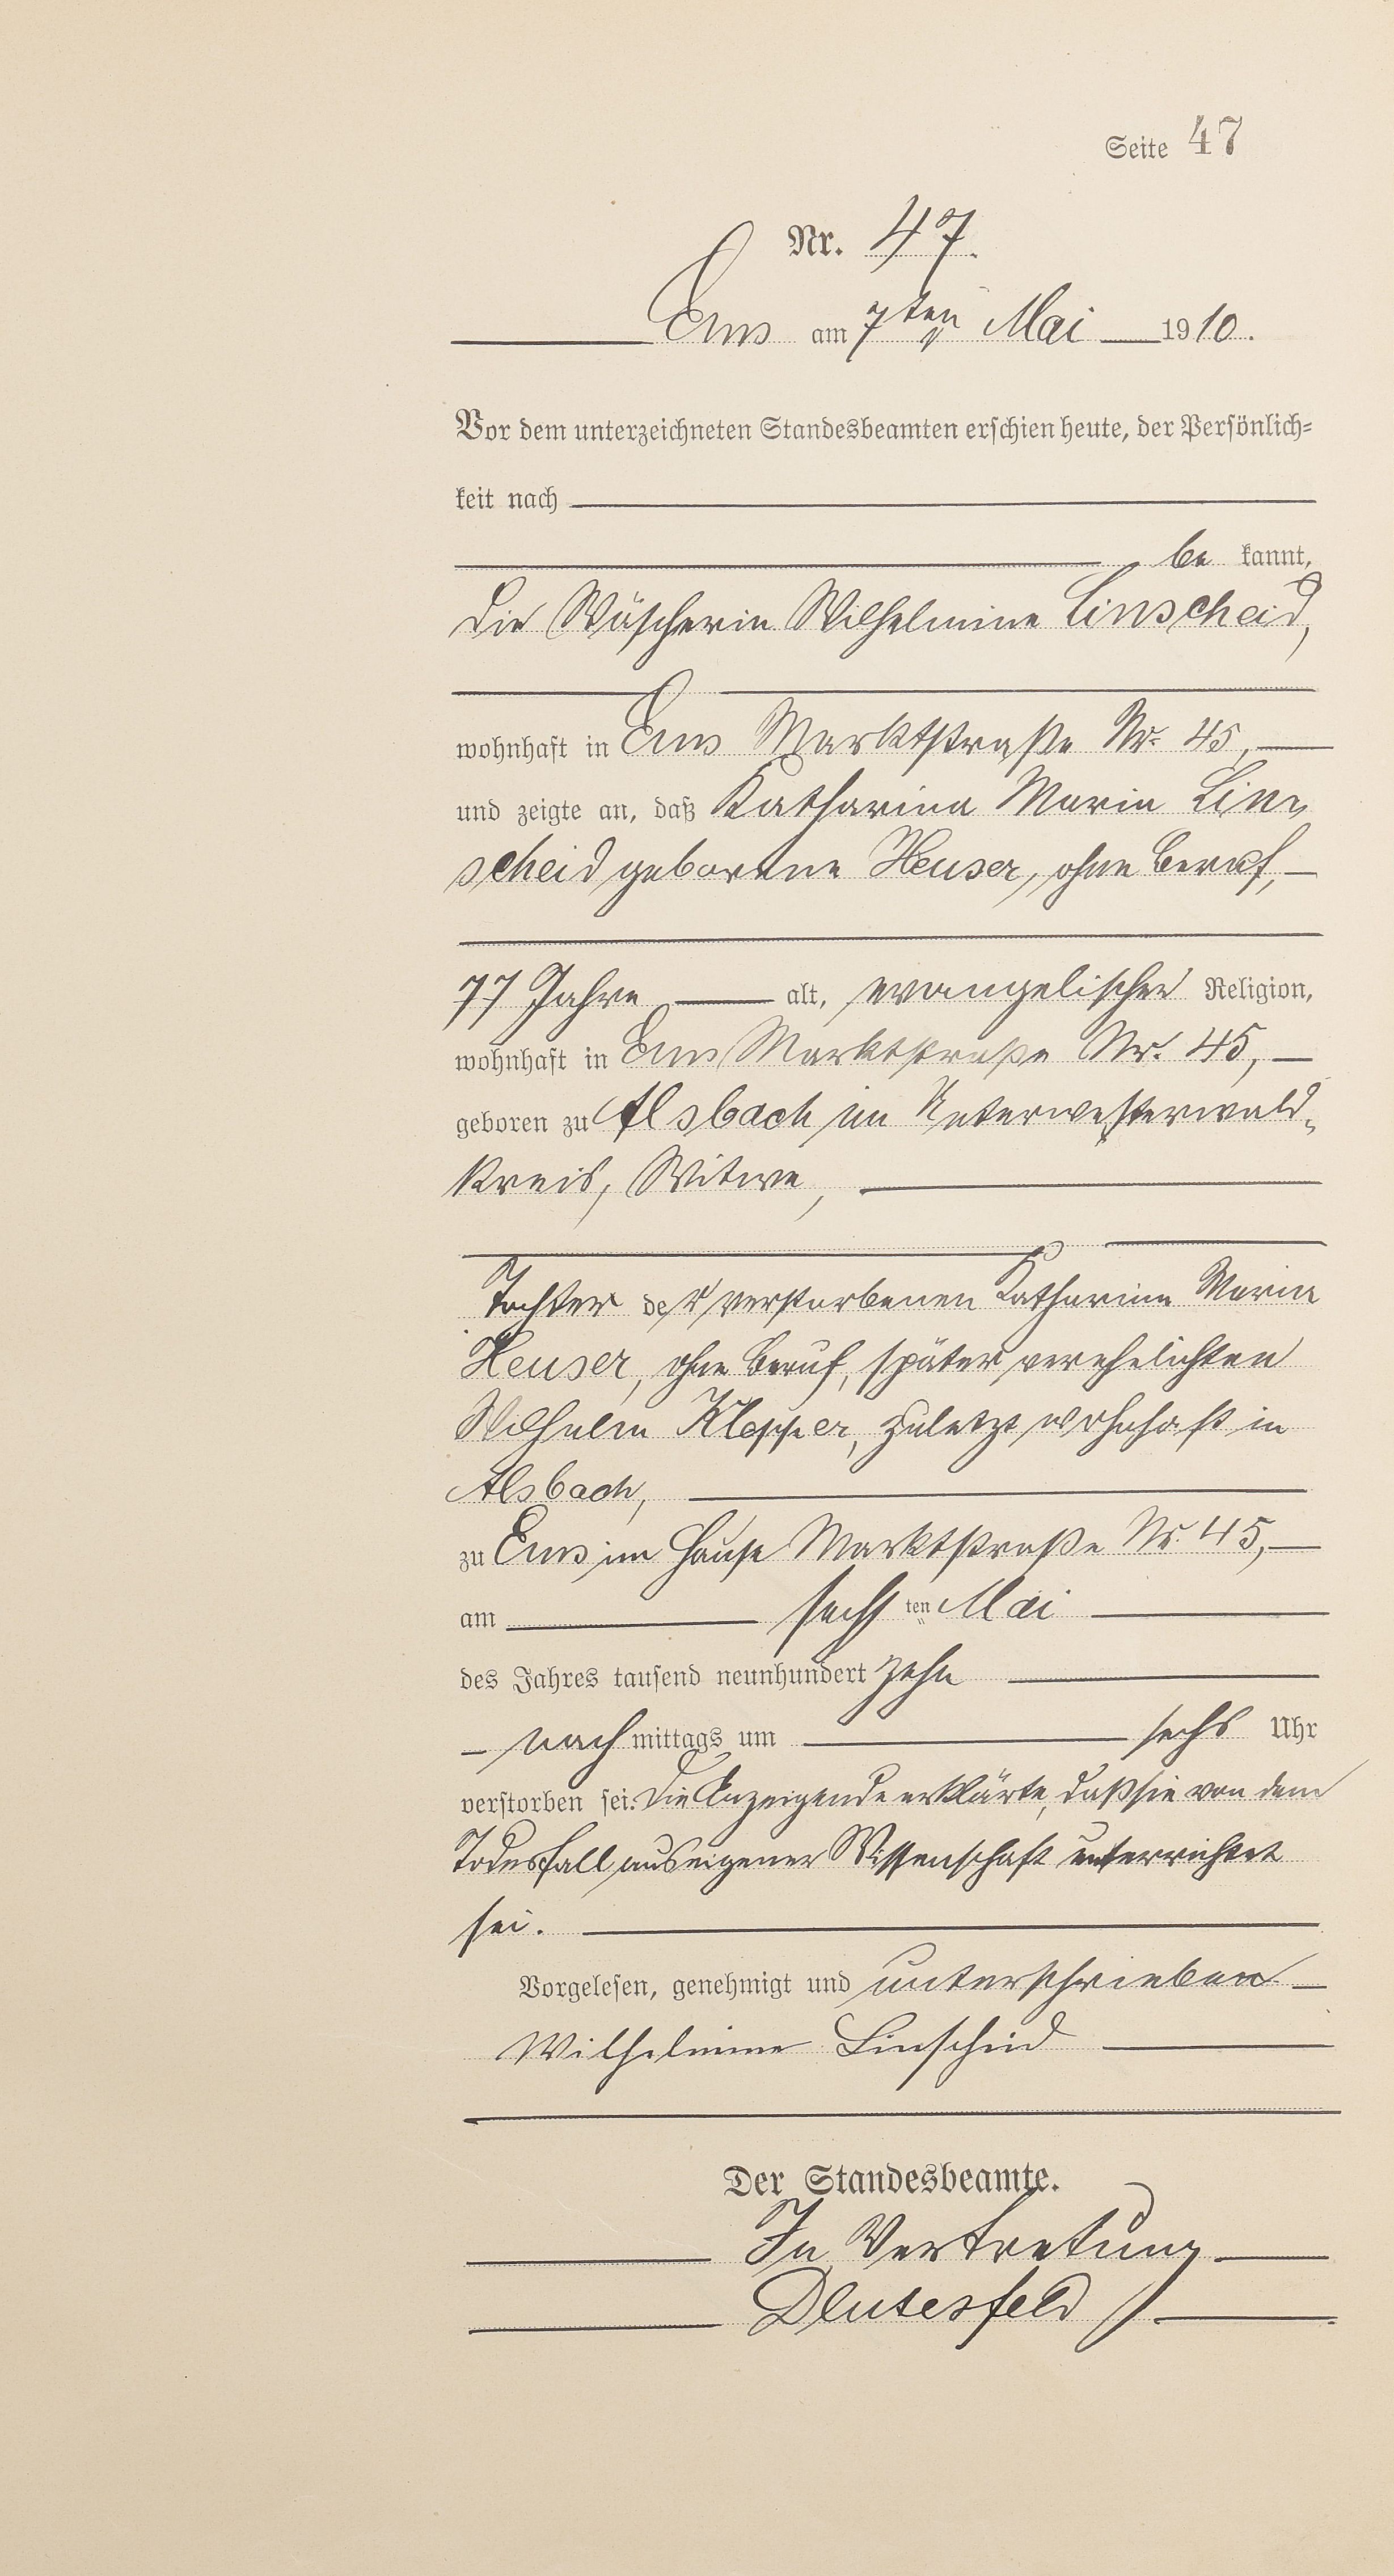 Seite 47
Nr. 47.
Ems am 7ten Mai 1910.
Vor dem unterzeichneten Standesbeamten erschien heute, der Persönlich-
keit nach
be kannt,
die Wäscherin Wilhelmine Linscheid,
wohnhaft in Ems Marktstraße Nr. 45,
und zeigte an, daß Katharina Maria Lin-
scheid geborene Heuser, ohne Beruf,
77 Jahre alt, evangelischer Religion,
wohnhaft in Ems Marktstraße Nr. 45,
geboren zu Alsbach im Unterwesterwald-
kreis, Witwe,
Tochter der verstorbenen Katharina Maria
Heuser, ohne Beruf, später verehelichten
Wilhelm Klepper, zuletzt wohnhaft in
Alsbach,
zu Ems im Hause Marktstraße Nr. 45,
am sechsten Mai
des Jahres tausend neunhundert zehn
nachmittags um sechs Uhr
verstorben sei. Die Anzeigende erklärte, daß sie von dem
Todesfall aus eigener Wissenschaft unterrichtet
sei.
Vorgelesen, genehmigt und unterschrieben
Wilhelmine Linscheid
Der Standesbeamte.
In Vertretung
Deutesfeld